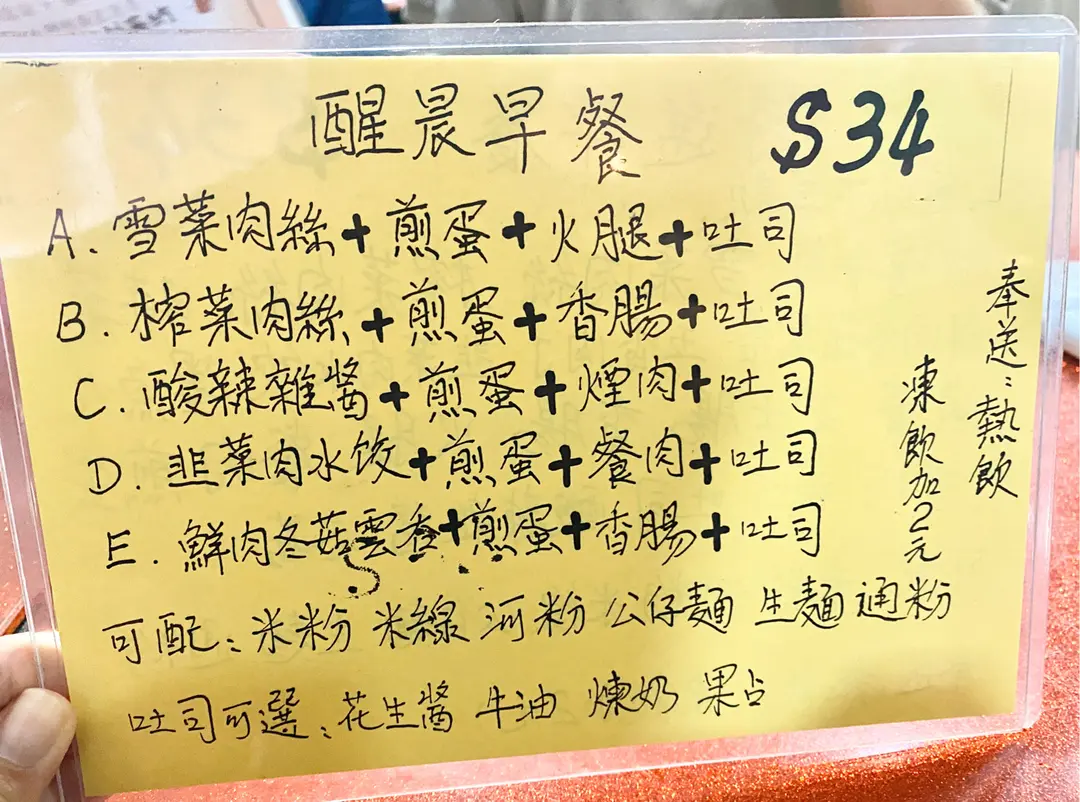 醒晨早餐 $34
A. 雪菜肉絲+煎蛋+火腿+吐司
B. 榨菜肉絲+煎蛋+香腸+吐司
C. 酸辣雜醬+煎蛋+煙肉+吐司
D. 韭菜肉水饺+煎蛋+餐肉+吐司
E. 鮮肉冬菇雲吞+煎蛋+香腸+吐司
可配: 米粉 米線 河粉 公仔麵 生麵 通粉
吐司可選: 花生醬 牛油 煉奶 果占
奉送: 熱飲
凍飲加2元